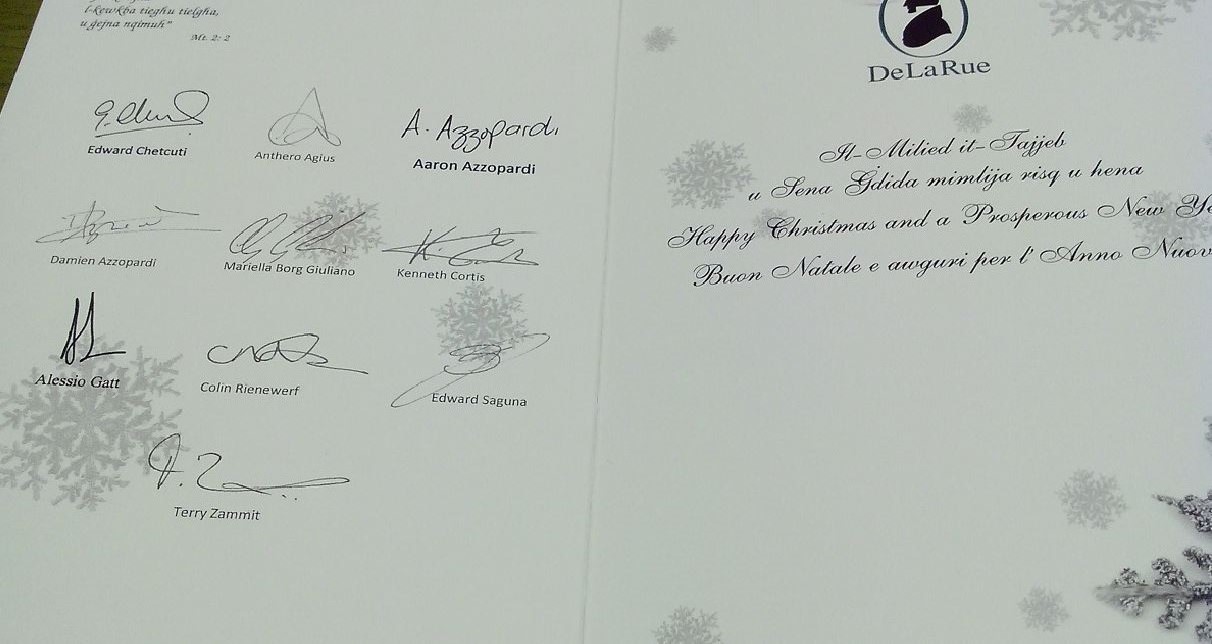 l-kewkba tiegħu tielgħa,
u ġejna nqimuh"
Mt. 2: 2
A. Azzopardi
Edward Chetcuti
Anthero Agius
Aaron Azzopardi
Damien Azzopardi
Mariella Borg Giuliano
Kenneth Cortis
Alessio Gatt
Colin Rienewerf
Edward Saguna
Terry Zammit
DeLaRue
Il-Milied it-Tajjeb
u Sena Gdida mimlija risq u hena
Happy Christmas and a Prosperous New Ye
Buon Natale e awguri per l' Anno Nuov